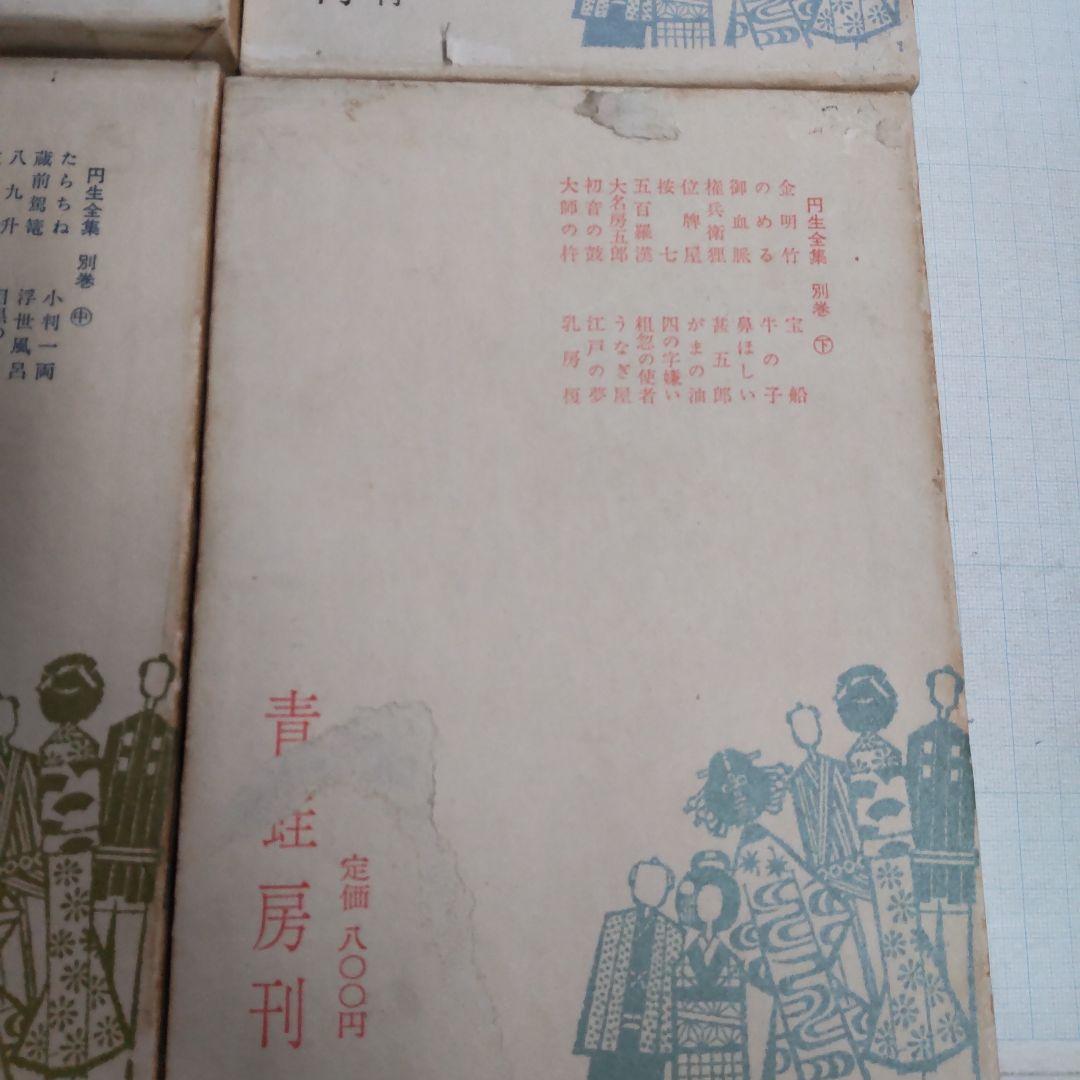 円生全集 別巻 下
金明竹
のめる
御血脈
権兵衛狸
位牌屋
按七
五百羅漢
大名房五郎
初音の鼓
大師の杵
宝船
牛の子
鼻ほしい
甚五郎
がまの油
四の字嫌い
粗忽の使者
うなぎ屋
江戸の夢
乳房榎
定価 八〇〇円
青蛙房刊
円生全集 別巻 中
たらちね
蔵前駕籠
八九升
小判一両
浮世風呂